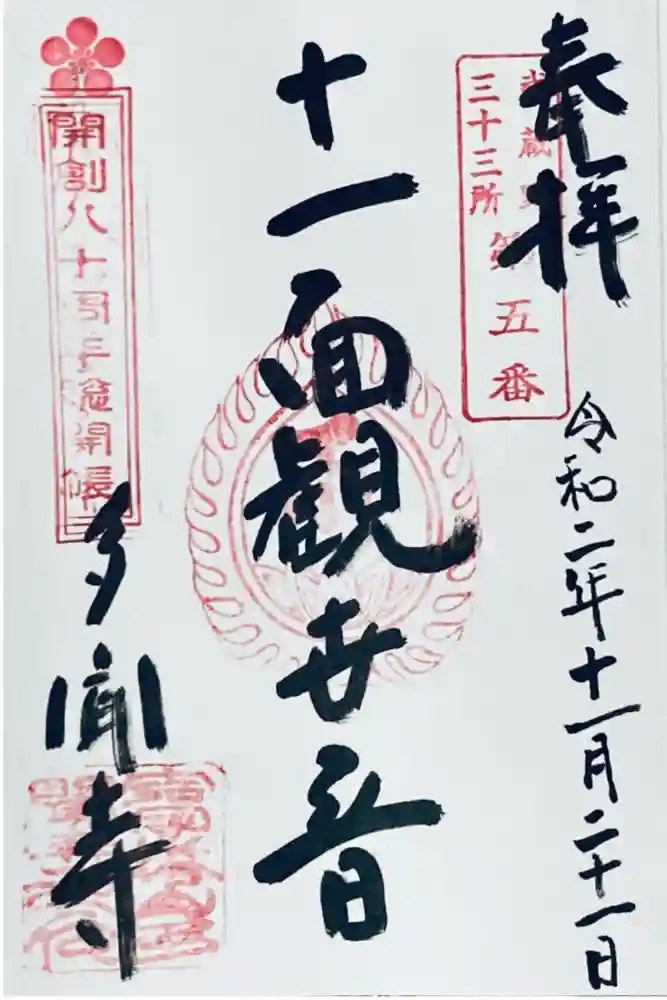 奉拝
武蔵野
三十三所
第五番
令和二年十一月二十一日
十一面観世音
開創八十周年総開帳
多聞寺